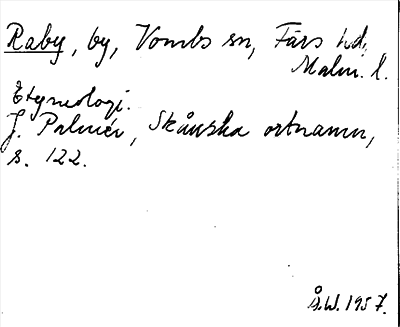 Raby, by, Vombs sn, Färs hd,
Malm. l.
Etymologi.
J. Palmér, Skånska ortnamn,
s. 122.
Å.W. 1957.